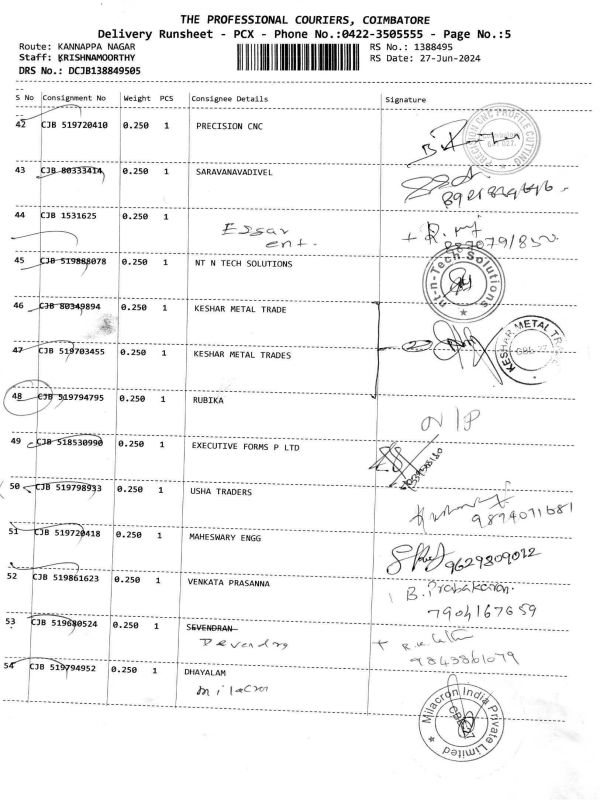 THE PROFESSIONAL COURIERS, COIMBATORE
Delivery Runsheet - PCX - Phone No.:0422-3505555 - Page No.:5
Route: KANNAPPA NAGAR RS No.: 1388495
Staff: KRISHNAMOORTHY RS Date: 27-Jun-2024
DRS No.: DCJB138849505
S No Consignment No Weight PCS Consignee Details Signature
42 CJB 519720410 0.250 1 PRECISION CNC
43 CJB 80333414 0.250 1 SARAVANAVADIVEL
44 CJB 1531625 0.250 1 Essar
ent.
45 CJB 519888078 0.250 1 NT N TECH SOLUTIONS
nt-n-Tech Solutions
46 CJB 80349894 0.250 1 KESHAR METAL TRADE
47 CJB 519703455 0.250 1 KESHAR METAL TRADES
KESHAR METAL
48 CJB 519794795 0.250 1 RUBIKA
49 CJB 518530990 0.250 1 EXECUTIVE FORMS P LTD
50 CJB 519798933 0.250 1 USHA TRADERS
9894071681
51 CJB 519720418 0.250 1 MAHESWARY ENGG
9629809022
52 CJB 519861623 0.250 1 VENKATA PRASANNA
B. Prabakaran.
7904167659
53 CJB 519680524 0.250 1 SEVENDRAN
Devendra
9843861079
54 CJB 519794952 0.250 1 DHAYALAM
milacron
Milacron India Private Limited